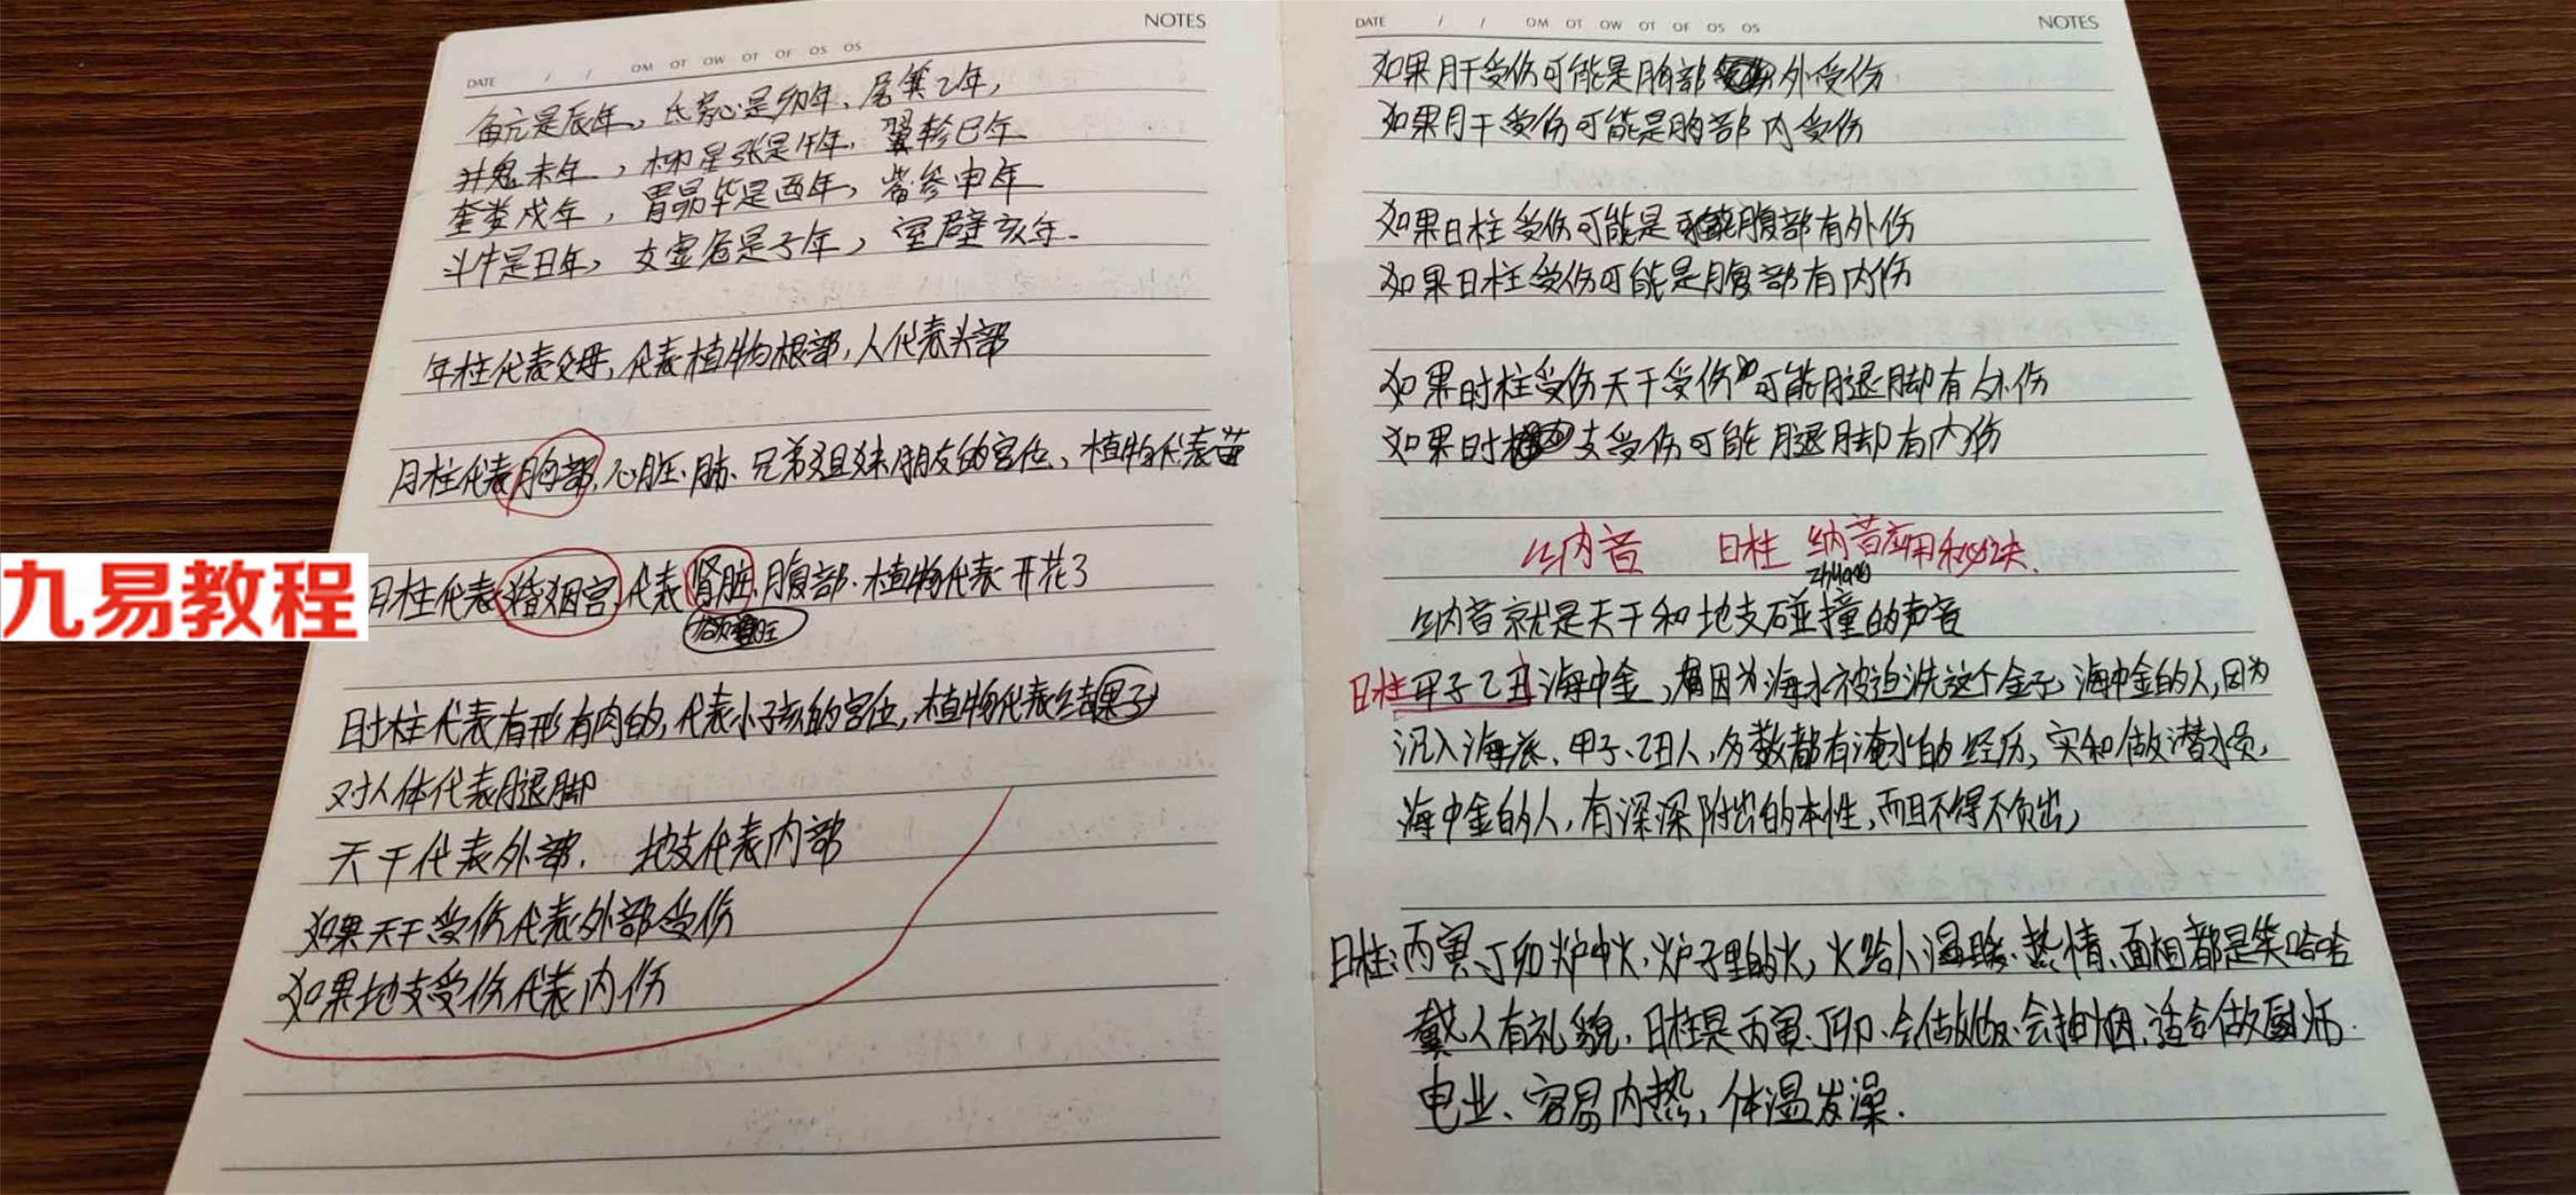 NOTES
DATE / / OM OT OW OT OF OS OS
角亢是辰年、氐房心是卯年、尾箕乙年，
井鬼未年，柳星张是午年，翼轸巳年
奎娄戌年，胃昴毕是酉年，觜参申年
斗牛是丑年，女虚危是子年，室壁亥年.
年柱代表父母,代表植物根部,人代表头部
月柱代表胸部,心脏、肺、兄弟姐妹朋友的宫位、植物代表苗
九易教程
日柱代表婚姻宫,代表肾脏,腹部.植物代表开花了
时柱代表有形有肉的,代表小孩的宫位,植物代表结果子
对人体代表腿脚
天干代表外部. 地支代表内部
如果天干受伤代表外部受伤
如果地支受伤代表内伤
DATE / / OM OT OW OT OF OS OS
NOTES
如果月干受伤可能是胸部外受伤
如果月干受伤可能是胸部内受伤
如果日柱受伤可能是腹部有外伤
如果日柱受伤可能是腹部有内伤
如果时柱受伤天干受伤可能腿脚有外伤
如果时支受伤可能腿脚有内伤
纳音 日柱 纳音应用秘诀.
zhuang
纳音就是天干和地支碰撞的声音
日柱甲子乙丑海中金,因为海水被迫洗这个金子,海中金的人,因为
沉入海底、甲子、乙丑人,多数都有淹水的经历,实和做潜水员,
海中金的人,有深深附出的本性,而且不得不负出,
日柱:丙寅、丁卯炉中火,炉子里的火,火给人温暖、热情、面相都是笑哈哈
戴人有礼貌,日柱是丙寅、丁卯、会做饭、会抽烟,适合做厨师.
电业、容易内热,体温发澡.